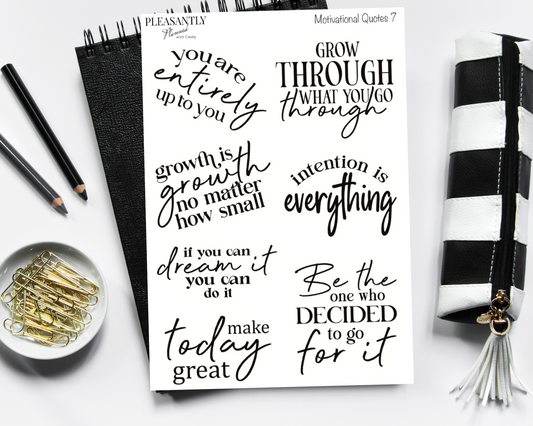 PLEASANTLY
Planned
with Casey
Motivational Quotes 7
you are
entirely
up to you
GROW
THROUGH
WHAT YOU GO
through
growth is
growth
no matter
how small
intention is
everything
if you can
dream it
you can
do it
Be the
one who
DECIDED
to go
for it
make
today
great